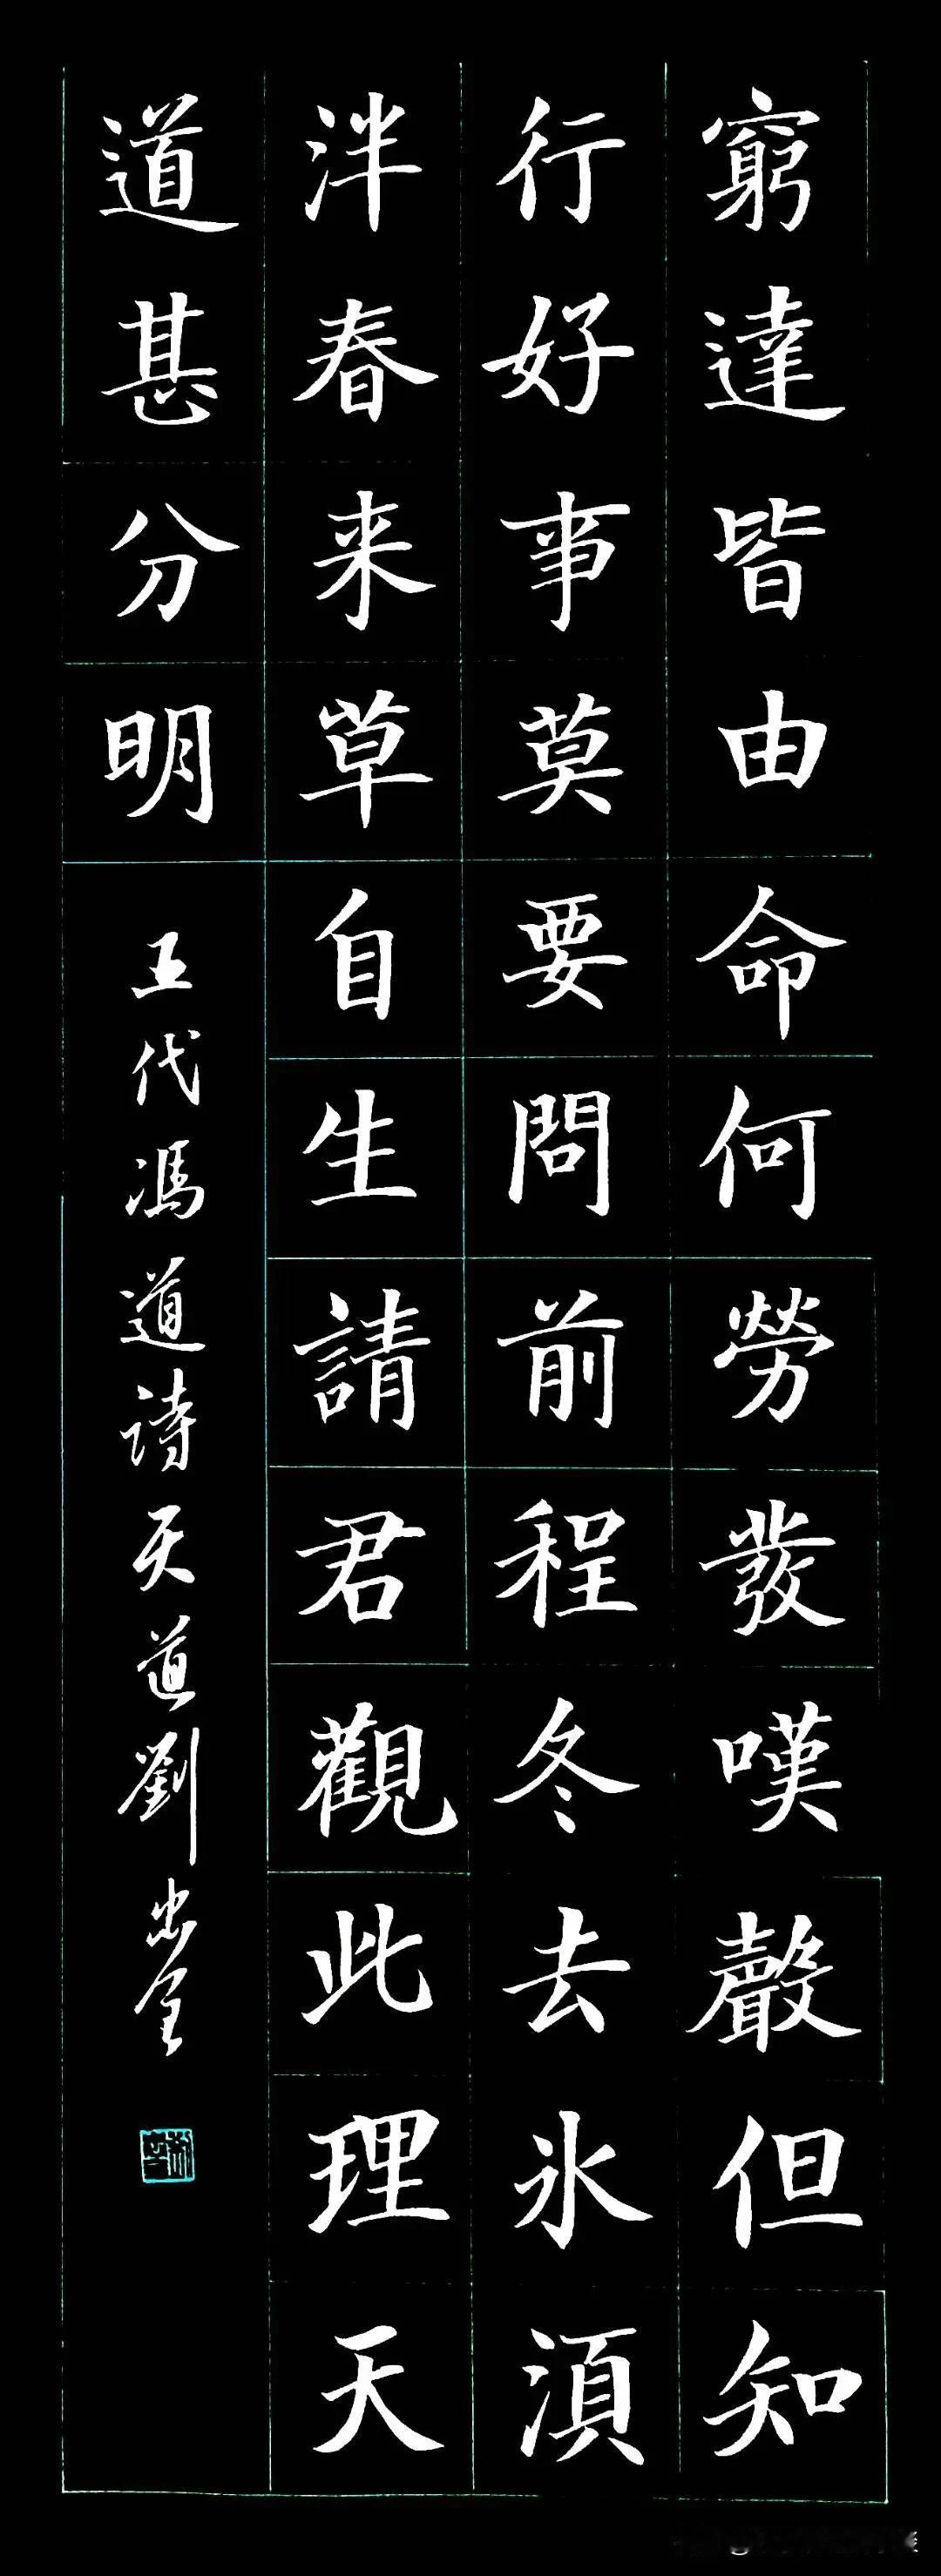 窮達皆由命何勞發嘆聲但知
行好事莫要問前程冬去氷湏
泮春来草自生請君觀此理天
道甚分明
五代馮道詩天道劉忠全